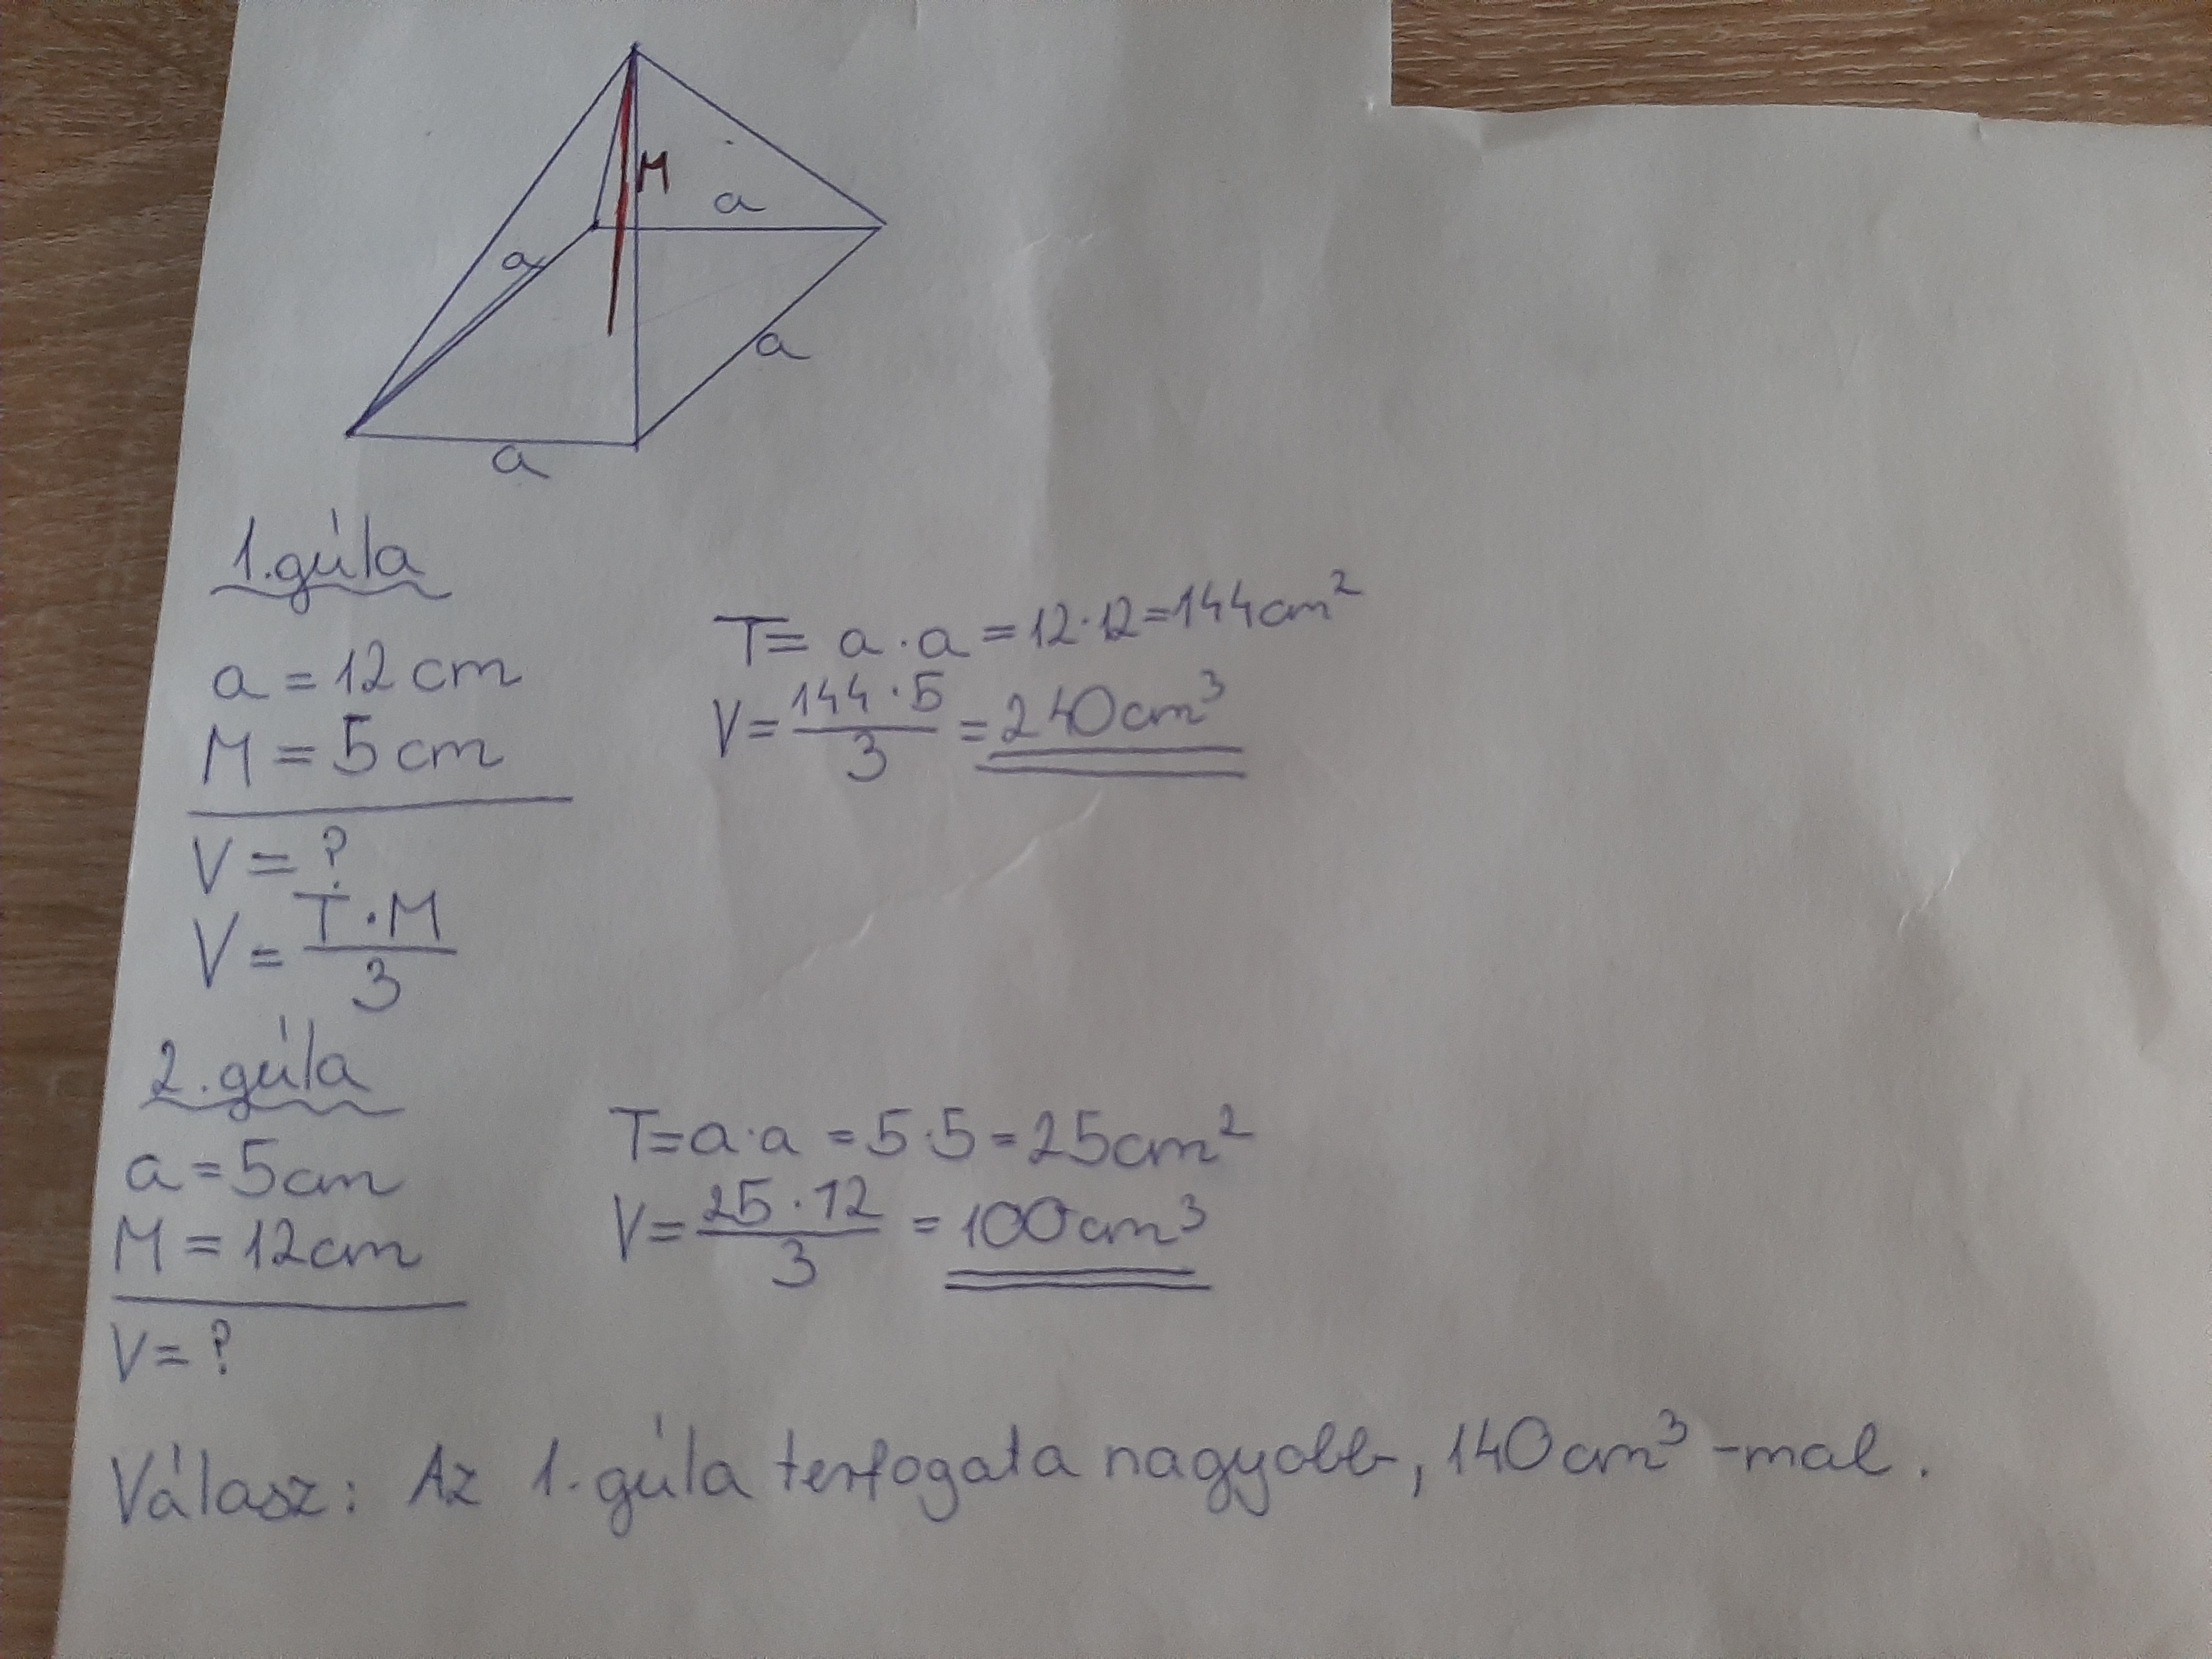 M
a
a
a
a
1.gúla
a = 12 cm
M = 5 cm
V = ?
V = T·M/3
T = a·a = 12·12 = 144cm²
V = 144·5/3 = 240cm³
2.gúla
a = 5cm
M = 12cm
V = ?
T = a·a = 5·5 = 25cm²
V = 25·12/3 = 100cm³
Válasz: Az 1. gúla térfogata nagyobb, 140cm³-mal.